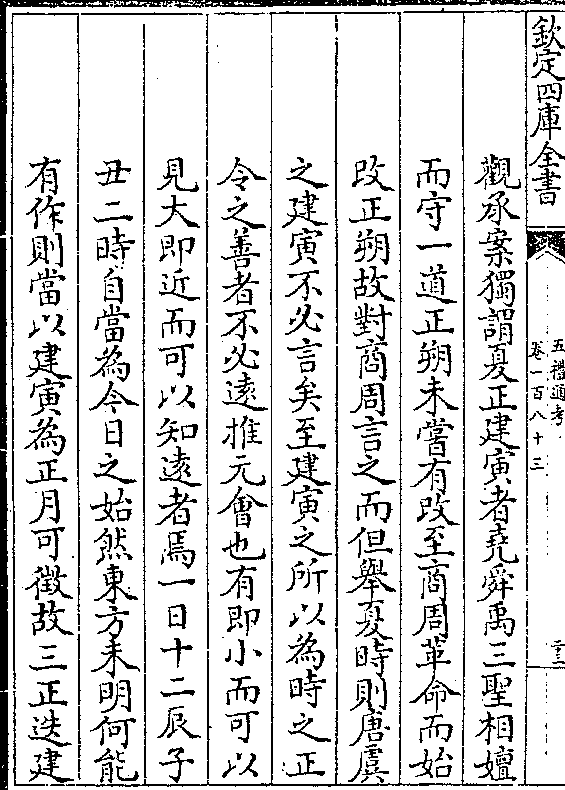 欽定四庫全書
五禮通考
卷一百八十三
二十二
觀承案獨謂夏正建寅者堯舜禹三聖相嬗
而守一道正朔未嘗有改至商周革命而始
改正朔故對商周言之而但舉夏時則唐虞
之建寅不必言矣至建寅之所以為時之正
令之善者不必遠推元會也有即小而可以
見大即近而可以知遠者焉一日十二辰子
丑二時自當為今日之始然東方未明何能
有作則當以建寅為正月可徵故三正迭建